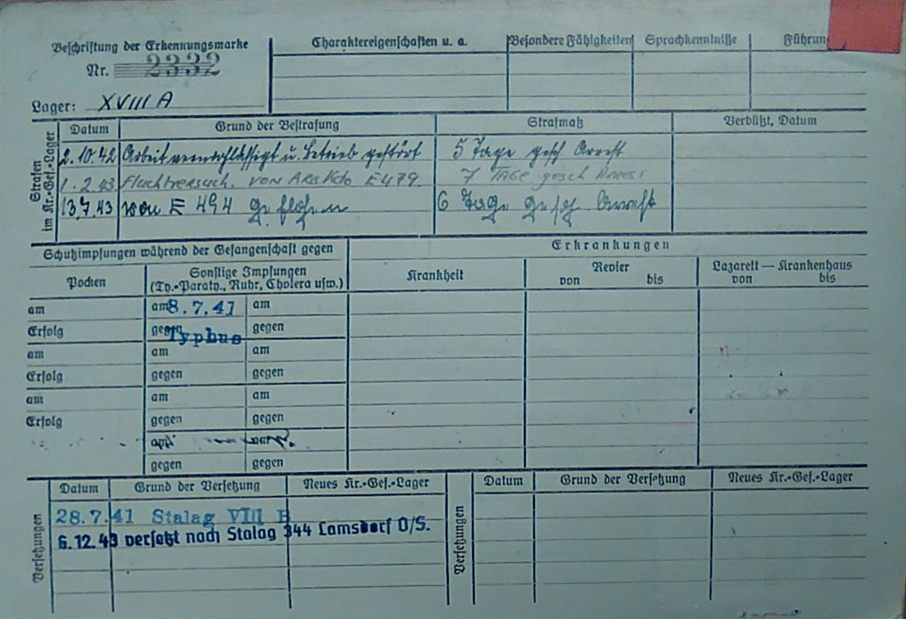 Beschriftung der Erkennungsmarke
Nr. 2332
Lager: XVIII A
Charaktereigenschaften u. a.
Besondere Fähigkeiten
Sprachkenntnisse
Führung
Strafen im Kr.-Gef.-Lager
Datum Grund der Bestrafung Strafmaß Verbüßt, Datum
2.10.42 Arbeit vernachlässigt u. Betrieb gestört 5 Tage gesch Arrest
1.2.43 Fluchtversuch. von Arbs Kdo E479. 7 Tage gesch Arrest
13.7.43 von E 494 geflohen 6 Tage gesch Arrest
Schutzimpfungen während der Gefangenschaft gegen
Erkrankungen
Pocken
Sonstige Impfungen
(Ty.-Paraty., Ruhr, Cholera usw.)
Krankheit
Revier
von bis
Lazarett — Krankenhaus
von bis
am am 8.7.41 am
Erfolg gegen Typhus gegen
am am am
Erfolg gegen gegen
am am am
Erfolg gegen gegen
am am
gegen gegen
Versetzungen
Datum Grund der Versetzung Neues Kr.-Gef.-Lager
28.7.41 Stalag VIII B
6.12.43 versetzt nach Stalag 344 Lamsdorf O/S.
Versetzungen
Datum Grund der Versetzung Neues Kr.-Gef.-Lager